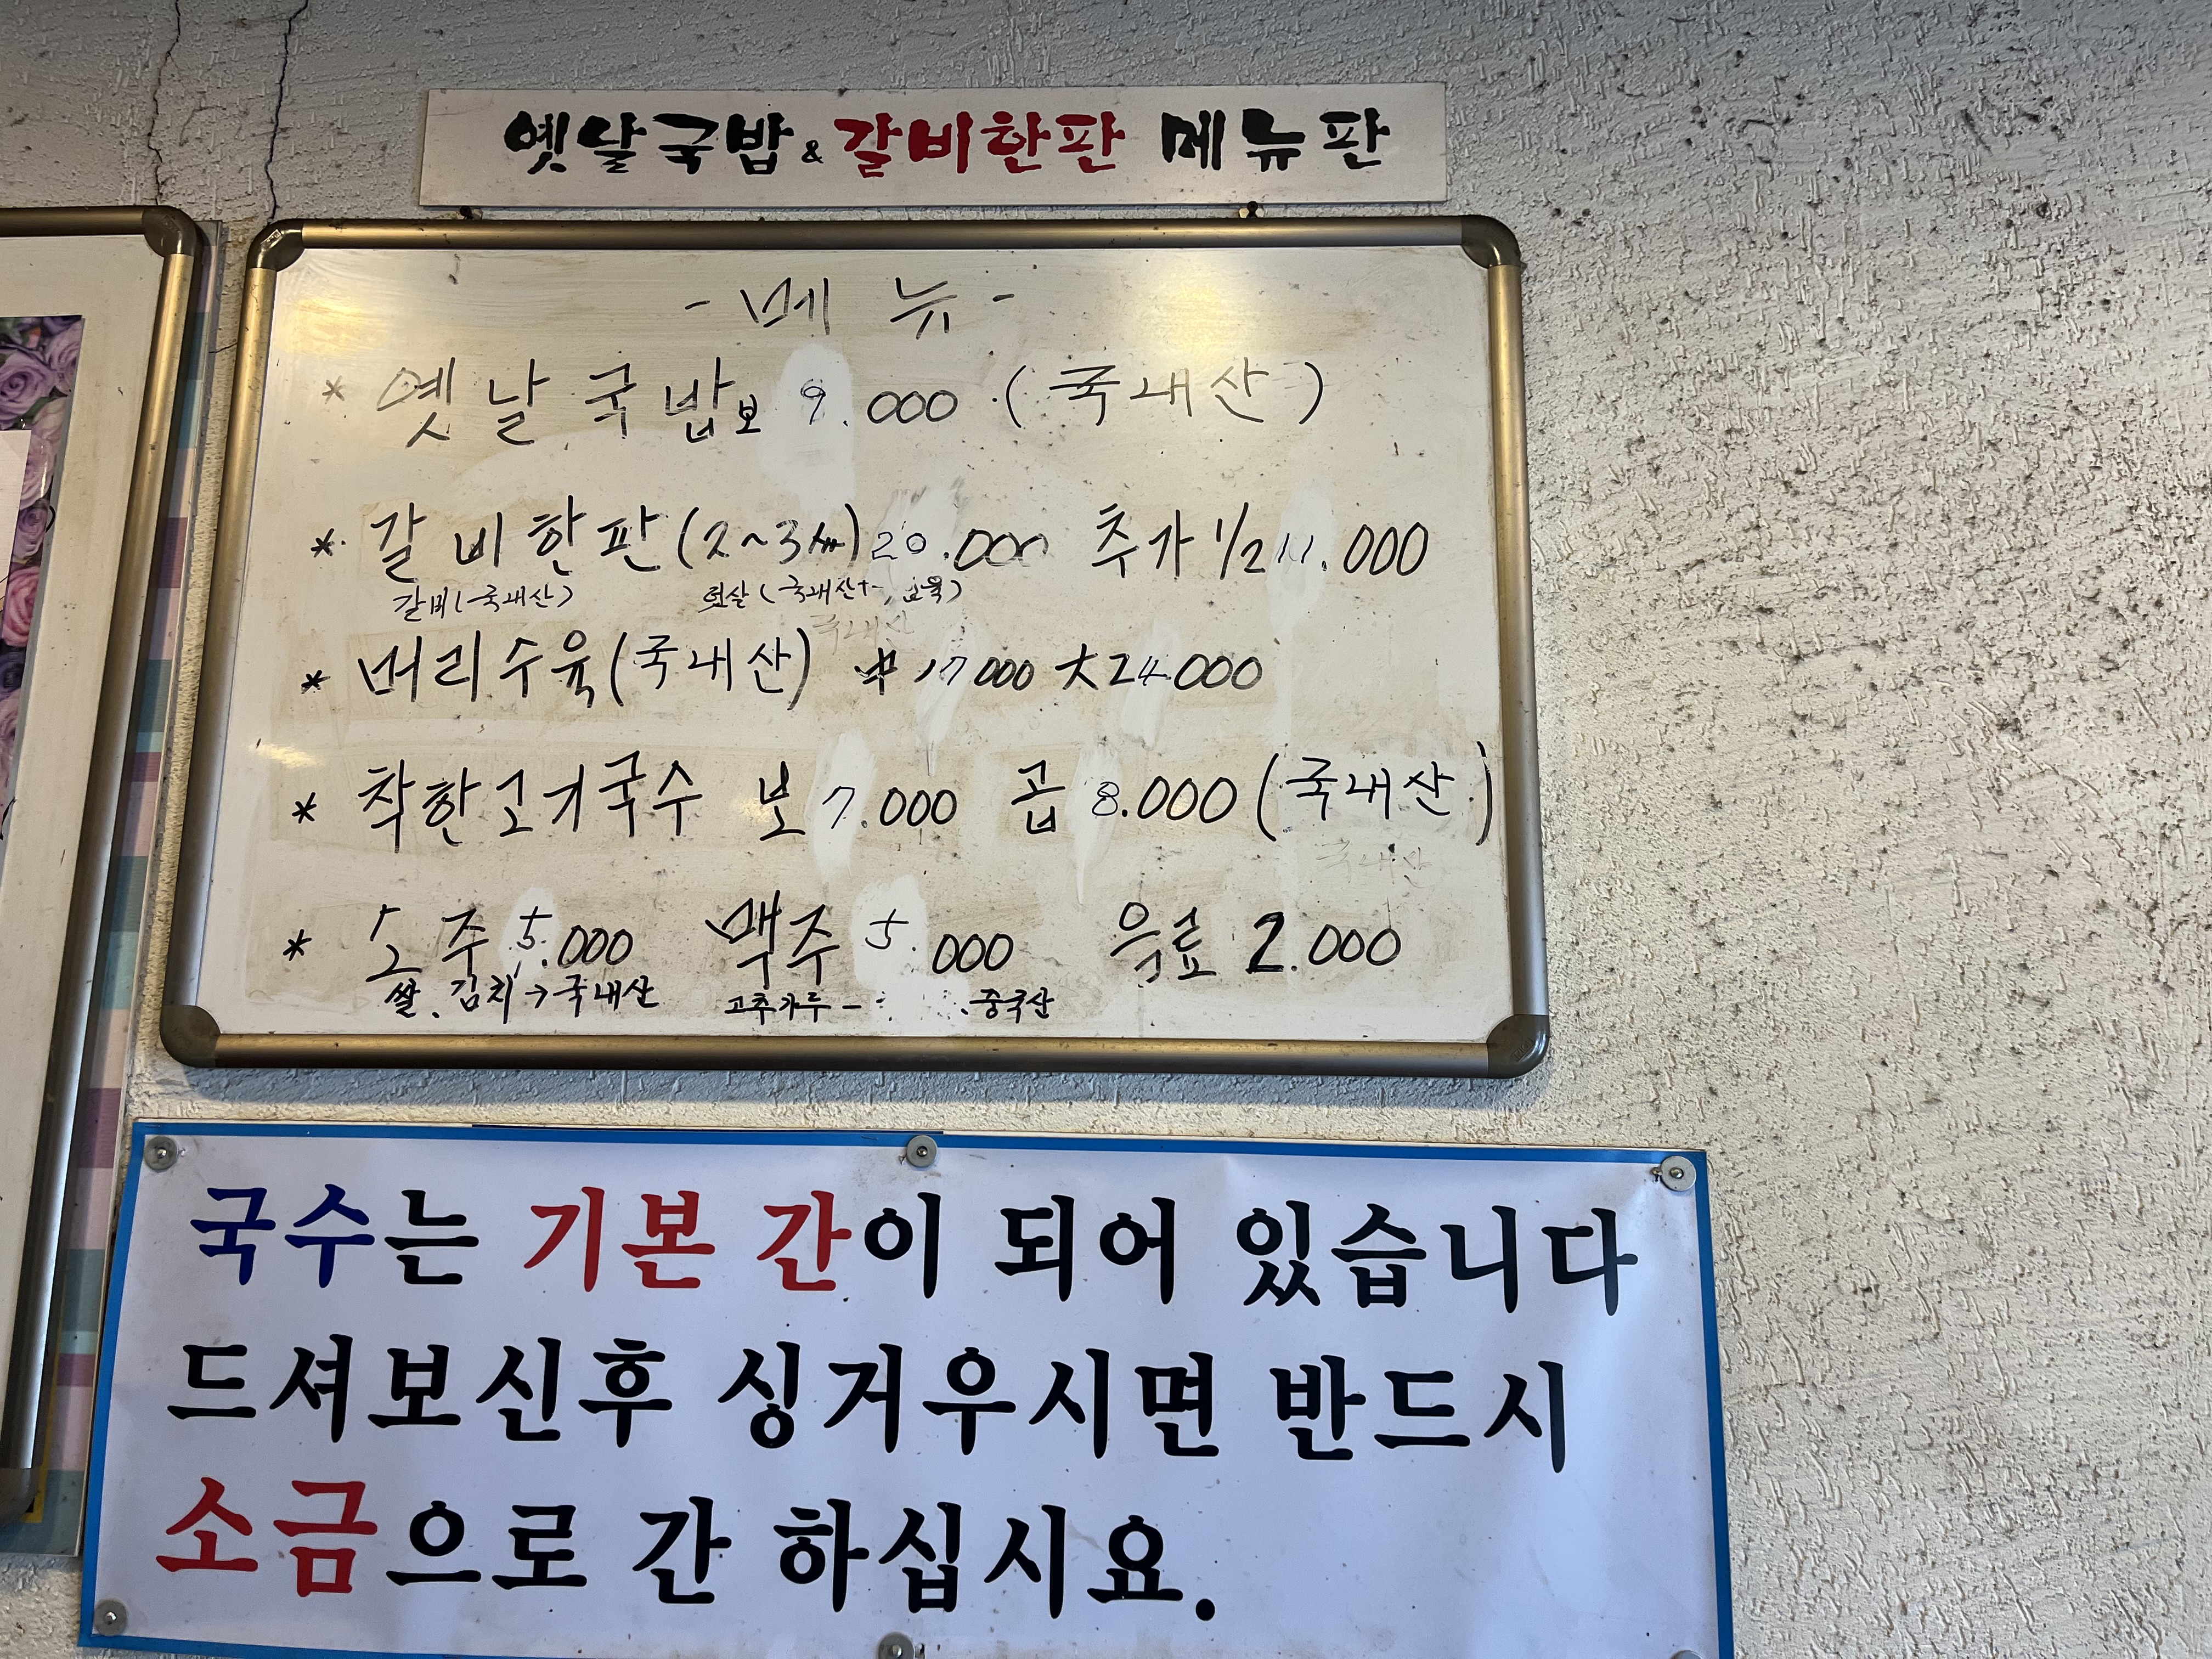 옛날국밥 & 갈비한판 메뉴판
- 메 뉴 -
* 옛날국밥 보 9.000 (국내산)
* 갈비한판 (2~3人) 20.000 추가 1/2 11.000
갈비(국내산) (국내산
국내산
* 머리수육(국내산) 中 17000 大 24.000
* 착한고기국수 보 7.000 곱 8.000 (국내산)
국내산
* 소주 5.000 맥주 5.000 음료 2.000
쌀. 김치→국내산 고추가루- 중국산
국수는 기본 간이 되어 있습니다
드셔보신후 싱거우시면 반드시
소금으로 간 하십시요.